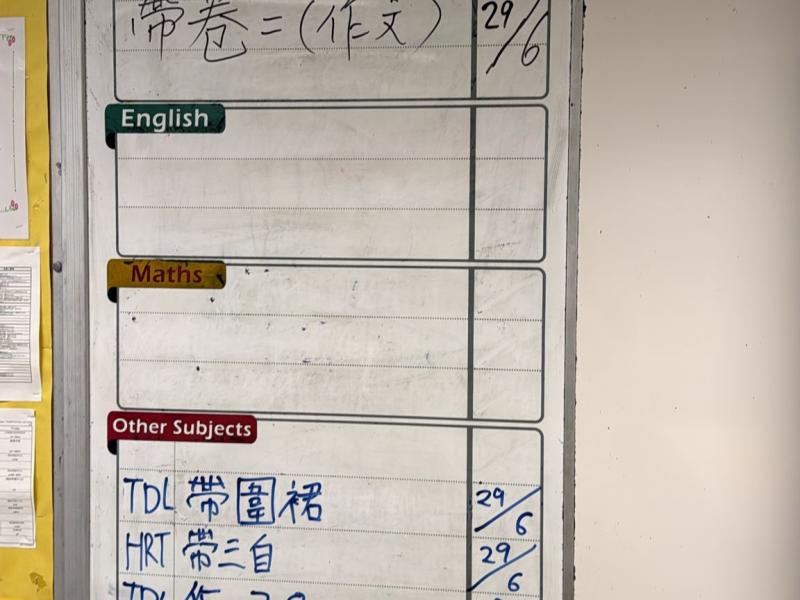 帶卷二（作文） 29/6
English
Maths
Other Subjects
TDL 帶圍裙 29/6
HRT 帶三自 29/6